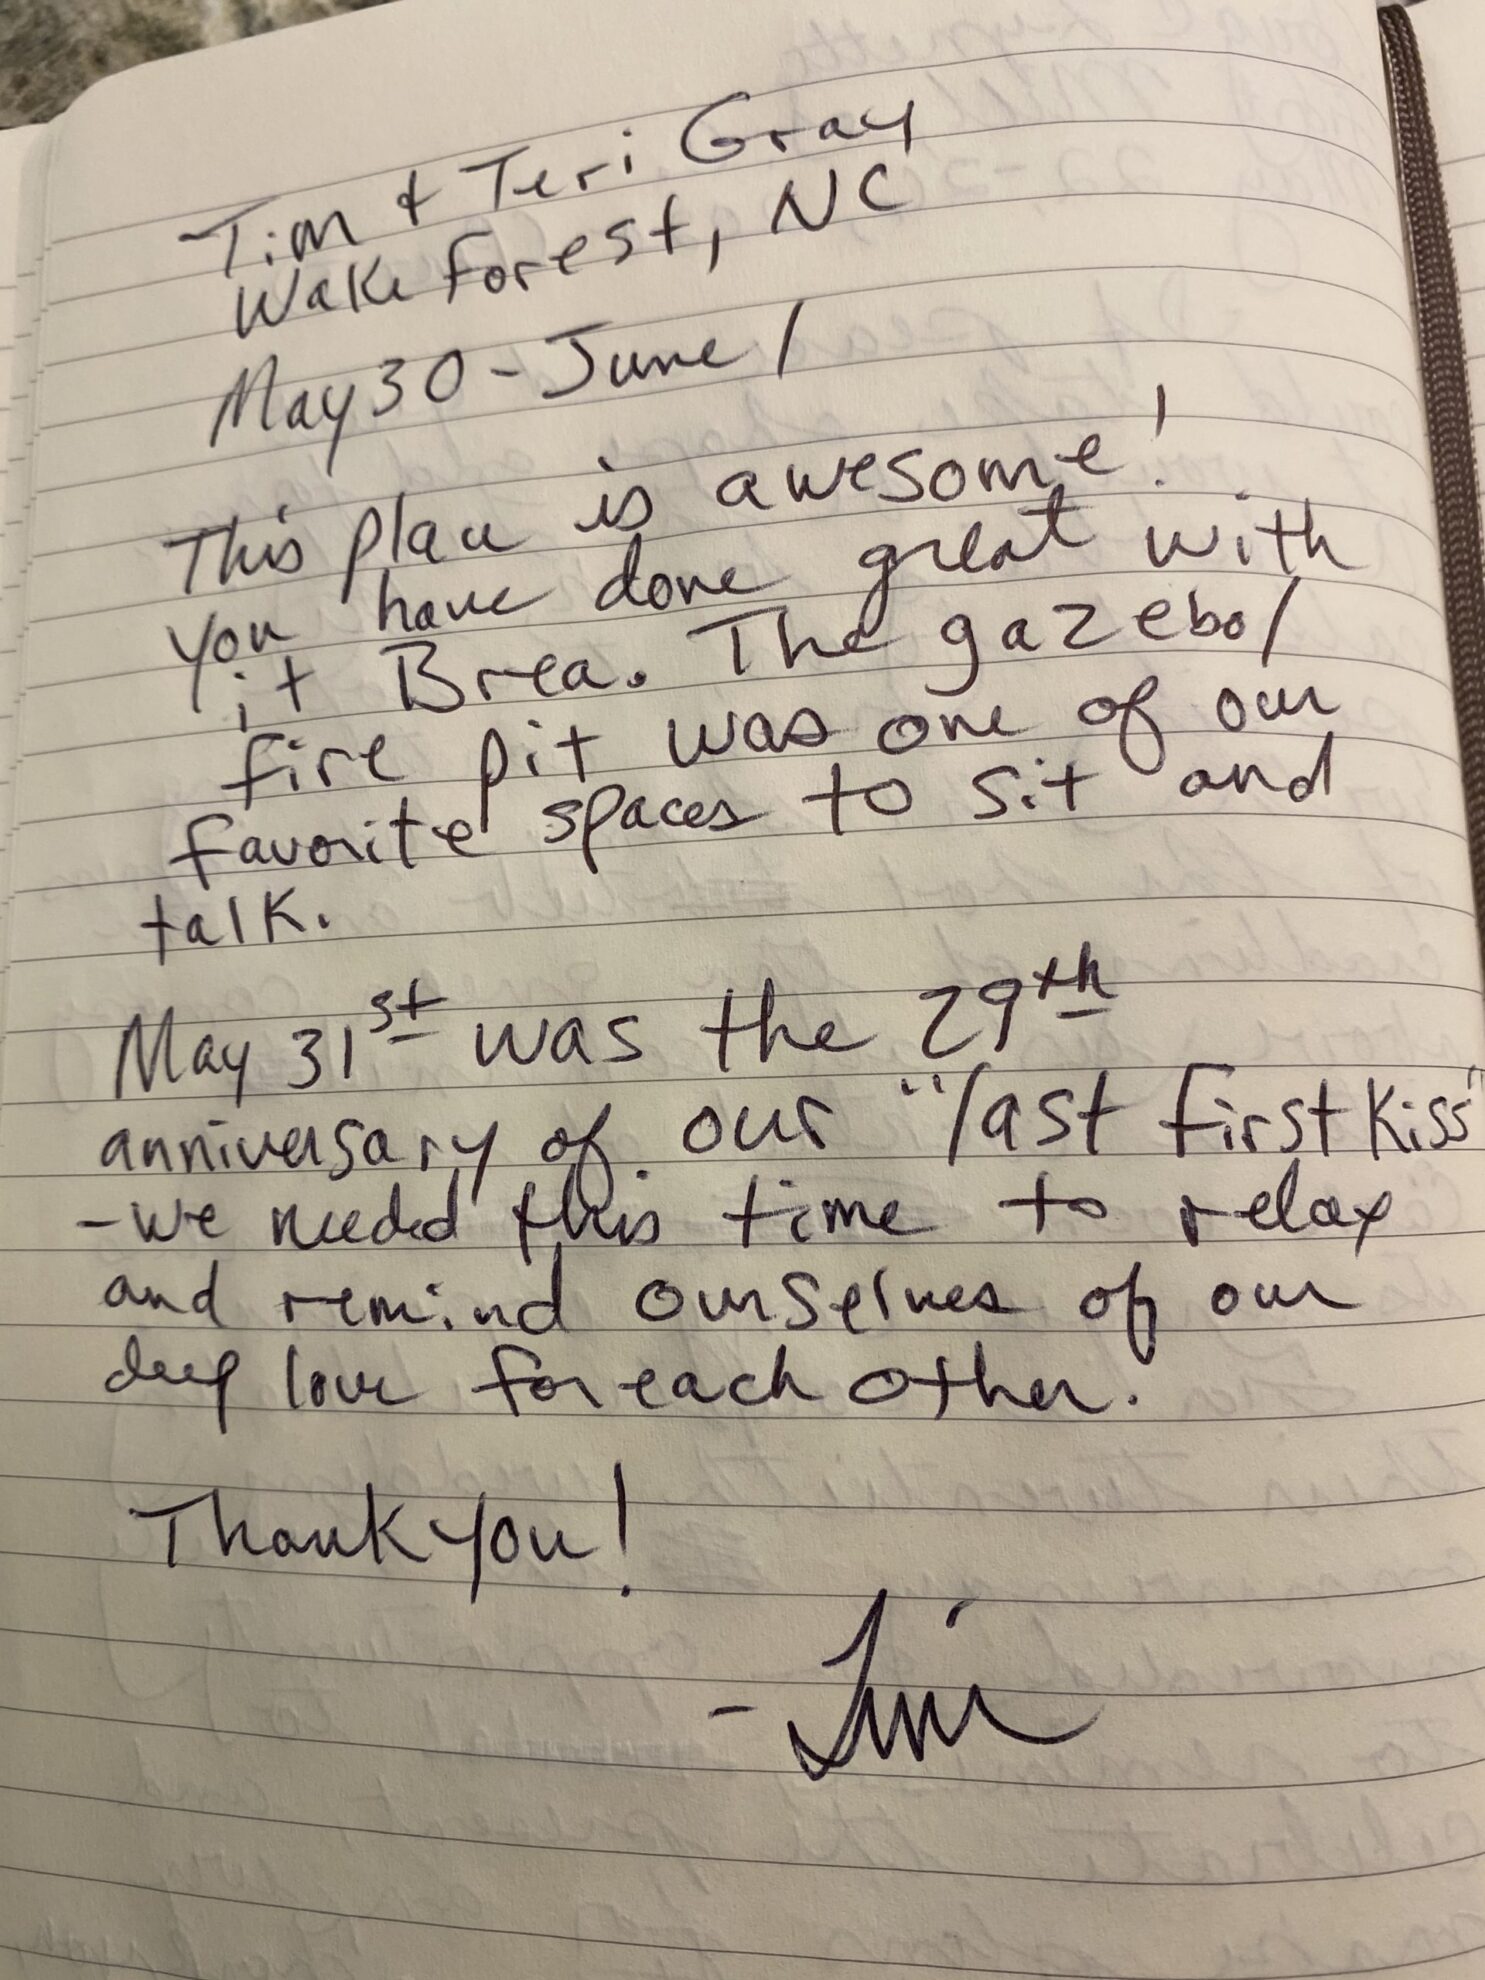 Tim & Teri Gray
Wake Forest, NC
May 30 - June 1
This place is awesome!
You have done great with
it Brea. The gazebo/
fire pit was one of our
favorite spaces to sit and
talk.
May 31st was the 29th
anniversary of our "last first kiss"
- we needed this time to relax
and remind ourselves of our
deep love for each other.
Thank you!
- Tim